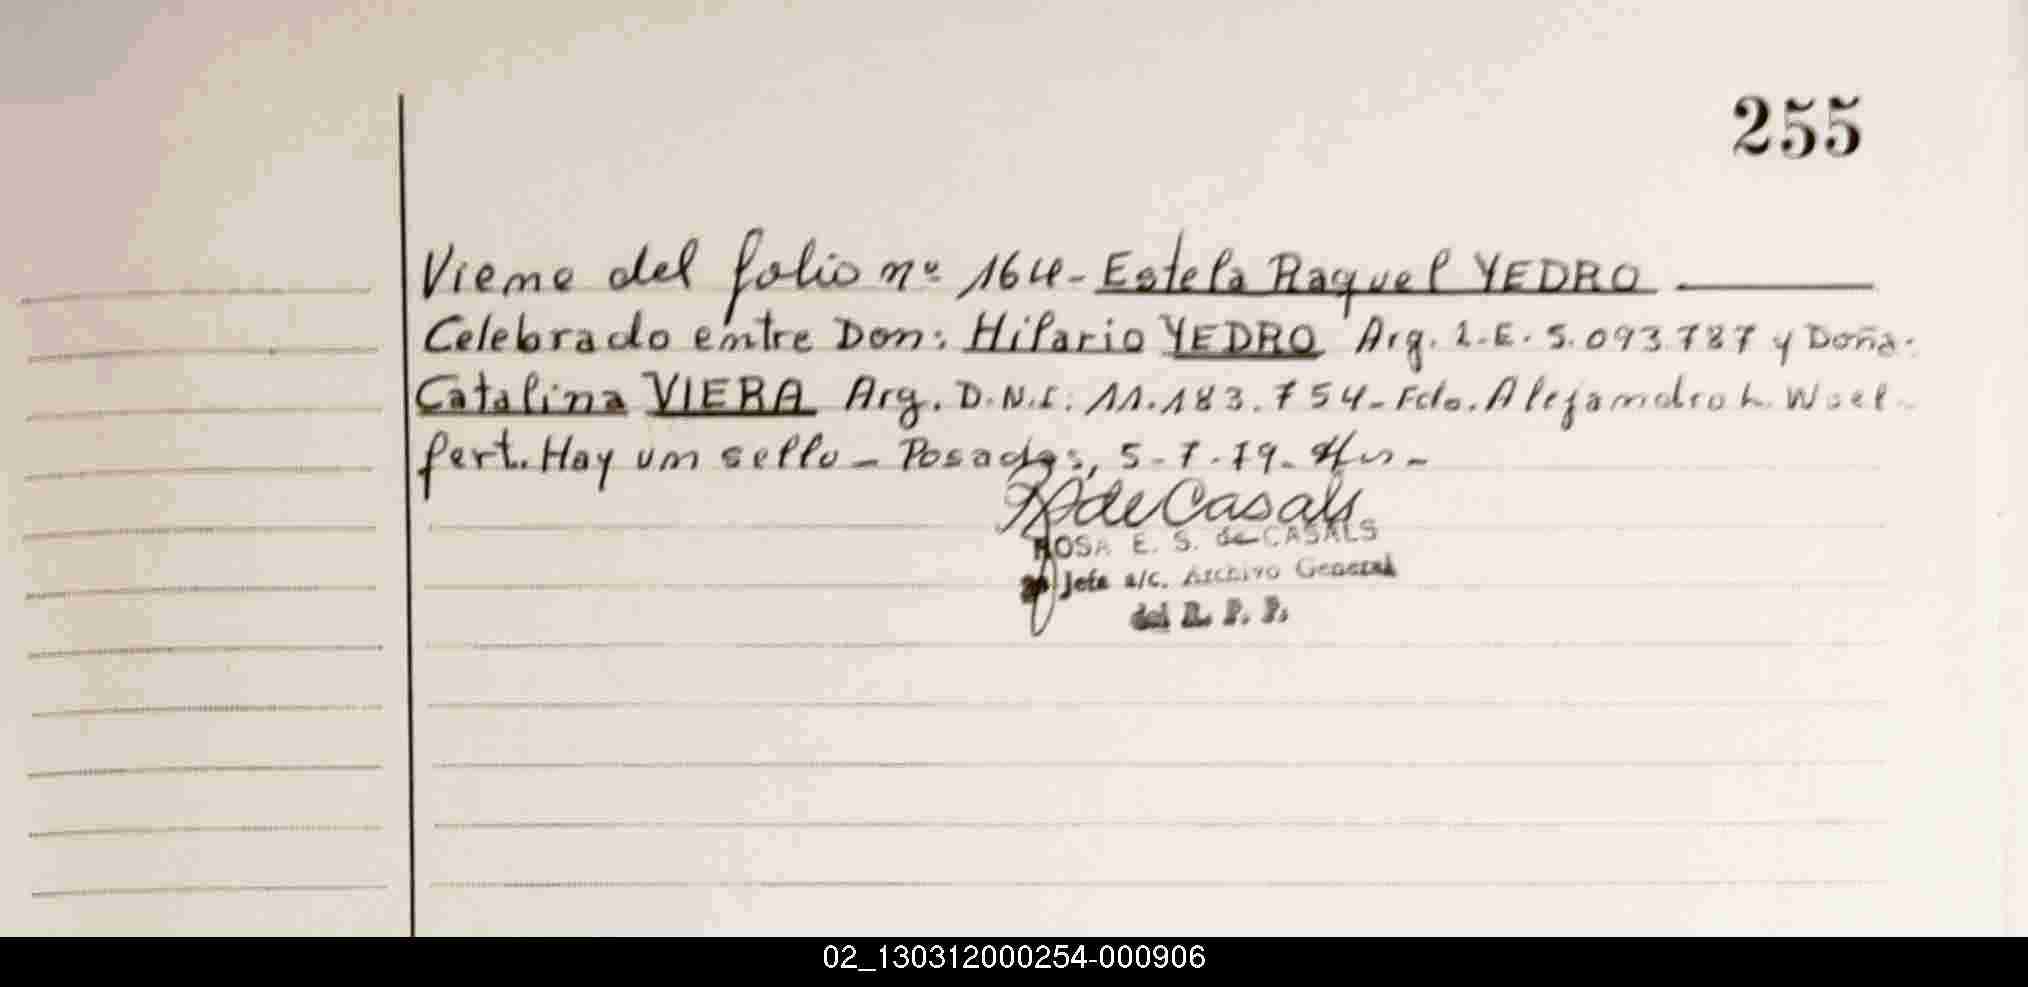 255
Viene del folio nº 164- Estela Raquel YEDRO
Celebrado entre Don: Hilario YEDRO Arg. L.E. 5.093.787 y Doña.
Catalina VIERA Arg. D.N.I: 11.183.754- Fdo. Alejandro L. Woel-
fert. Hay un sello - Posadas, 5-7-79.
de Casals
ROSA E. S. de CASALS
Jefa a/c. Archivo General
del R. P. P.
02_130312000254-000906